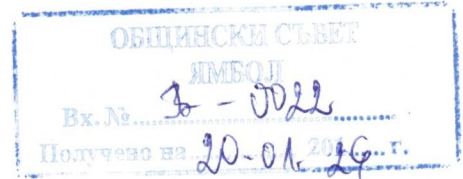 ОБЩИНСКИ СЪВЕТ
ЯМБОЛ
Вх. № - 0022
Получено на 20-01. 201 г.